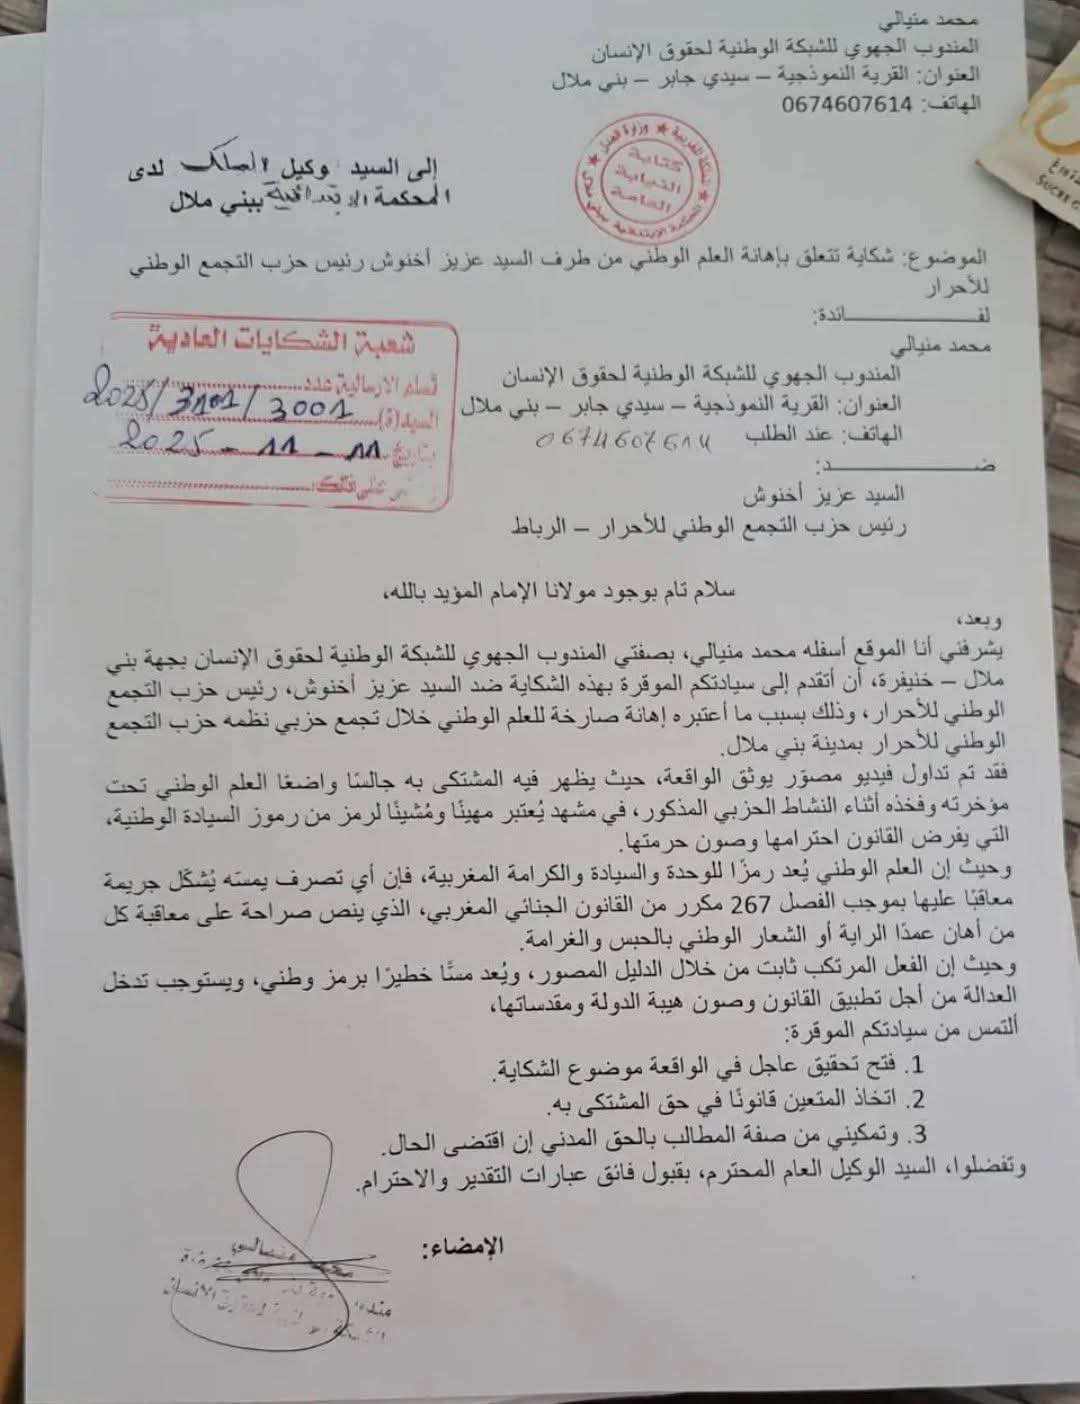 محمد منيالي
المندوب الجهوي للشبكة الوطنية لحقوق الإنسان
العنوان: القرية النموذجية – سيدي جابر – بني ملال
الهاتف: 0674607614
المملكة المغربية ★ وزارة العدل ★
المحكمة الابتدائية بني ملال
كتابة
النيابة
العامة
إلى السيد وكيل الملك لدى
المحكمة الابتدائية ببني ملال
الموضوع: شكاية تتعلق بإهانة العلم الوطني من طرف السيد عزيز أخنوش رئيس حزب التجمع الوطني
للأحرار
لفـــــــــــائدة:
محمد منيالي
المندوب الجهوي للشبكة الوطنية لحقوق الإنسان
العنوان: القرية النموذجية – سيدي جابر – بني ملال
الهاتف: عند الطلب 0674607614
شعبة الشكايات العادية
تسلم الارسالية عدد
2025/3101/3001
السيد(ة)
بتاريخ 11 - 11 - 2025
ضـــــــــــد:
السيد عزيز أخنوش
رئيس حزب التجمع الوطني للأحرار – الرباط
سلام تام بوجود مولانا الإمام المؤيد بالله،
وبعد،
يشرفني أنا الموقع أسفله محمد منيالي، بصفتي المندوب الجهوي للشبكة الوطنية لحقوق الإنسان بجهة بني
ملال – خنيفرة، أن أتقدم إلى سيادتكم الموقرة بهذه الشكاية ضد السيد عزيز أخنوش، رئيس حزب التجمع
الوطني للأحرار، وذلك بسبب ما أعتبره إهانة صارخة للعلم الوطني خلال تجمع حزبي نظمه حزب التجمع
الوطني للأحرار بمدينة بني ملال.
فقد تم تداول فيديو مصوّر يوثق الواقعة، حيث يظهر فيه المشتكى به جالسًا واضعًا العلم الوطني تحت
مؤخرته وفخذه أثناء النشاط الحزبي المذكور، في مشهد يُعتبر مهينًا ومُشينًا لرمز من رموز السيادة الوطنية،
التي يفرض القانون احترامها وصون حرمتها.
وحيث إن العلم الوطني يُعد رمزًا للوحدة والسيادة والكرامة المغربية، فإن أي تصرف يمسّه يُشكّل جريمة
معاقبًا عليها بموجب الفصل 267 مكرر من القانون الجنائي المغربي، الذي ينص صراحة على معاقبة كل
من أهان عمدًا الراية أو الشعار الوطني بالحبس والغرامة.
وحيث إن الفعل المرتكب ثابت من خلال الدليل المصور، ويُعد مسًّا خطيرًا برمز وطني، ويستوجب تدخل
العدالة من أجل تطبيق القانون وصون هيبة الدولة ومقدساتها،
ألتمس من سيادتكم الموقرة:
1. فتح تحقيق عاجل في الواقعة موضوع الشكاية.
2. اتخاذ المتعين قانونًا في حق المشتكى به.
3. وتمكيني من صفة المطالب بالحق المدني إن اقتضى الحال.
وتفضلوا، السيد الوكيل العام المحترم، بقبول فائق عبارات التقدير والاحترام.
الإمضاء: